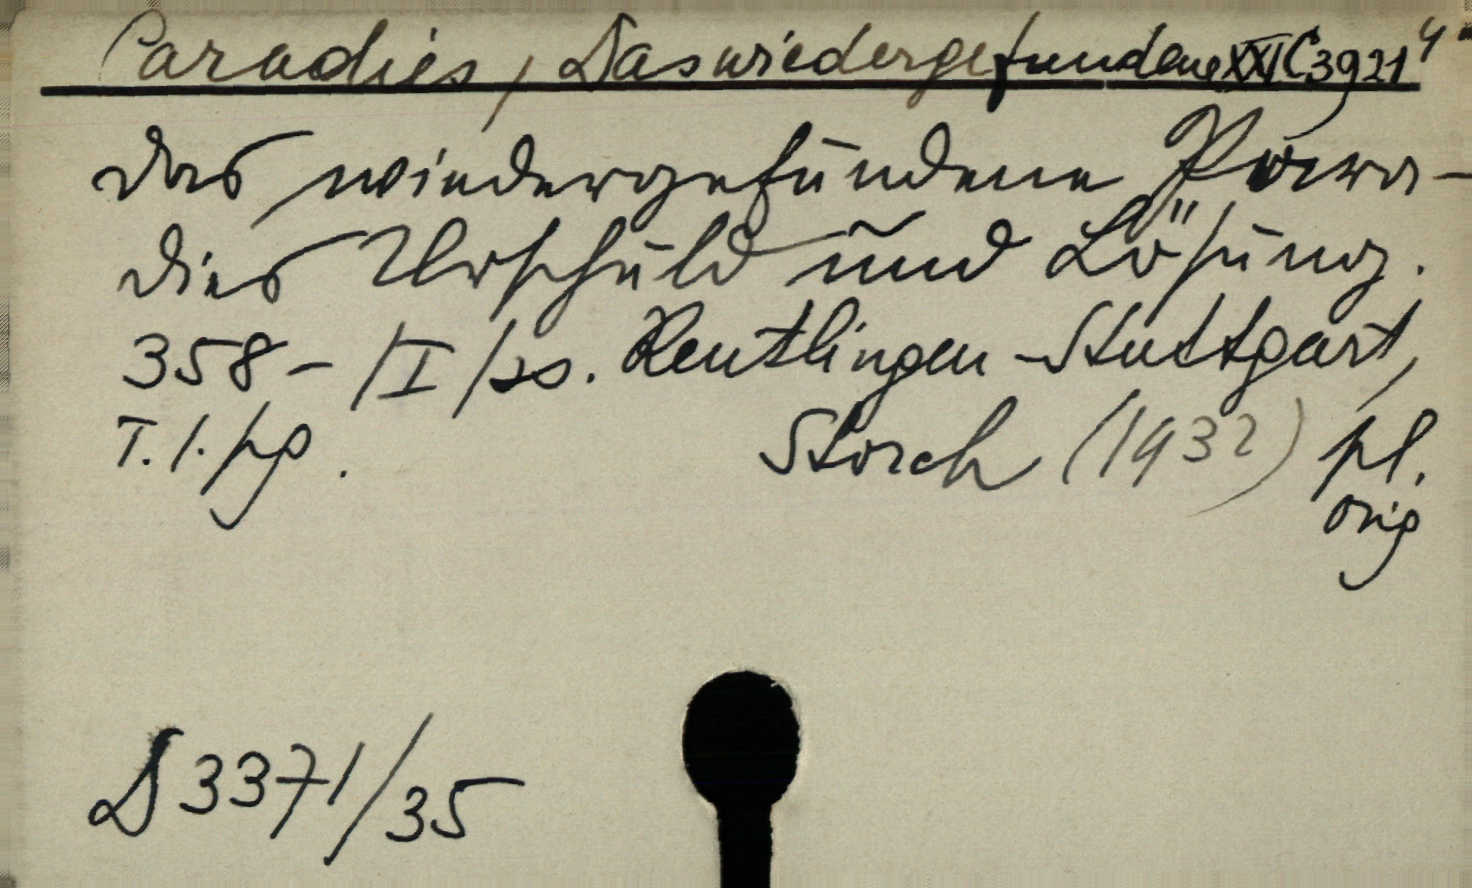 Paradies, Das wiedergefundene XXI C 3921 4°
Das wiedergefundene Para-
dies Urschuld und Lösung.
358 - /I/ ss. Reutlingen-Stuttgart,
T. 1. sg. Storch (1932) pl.
orig
D 3371/35